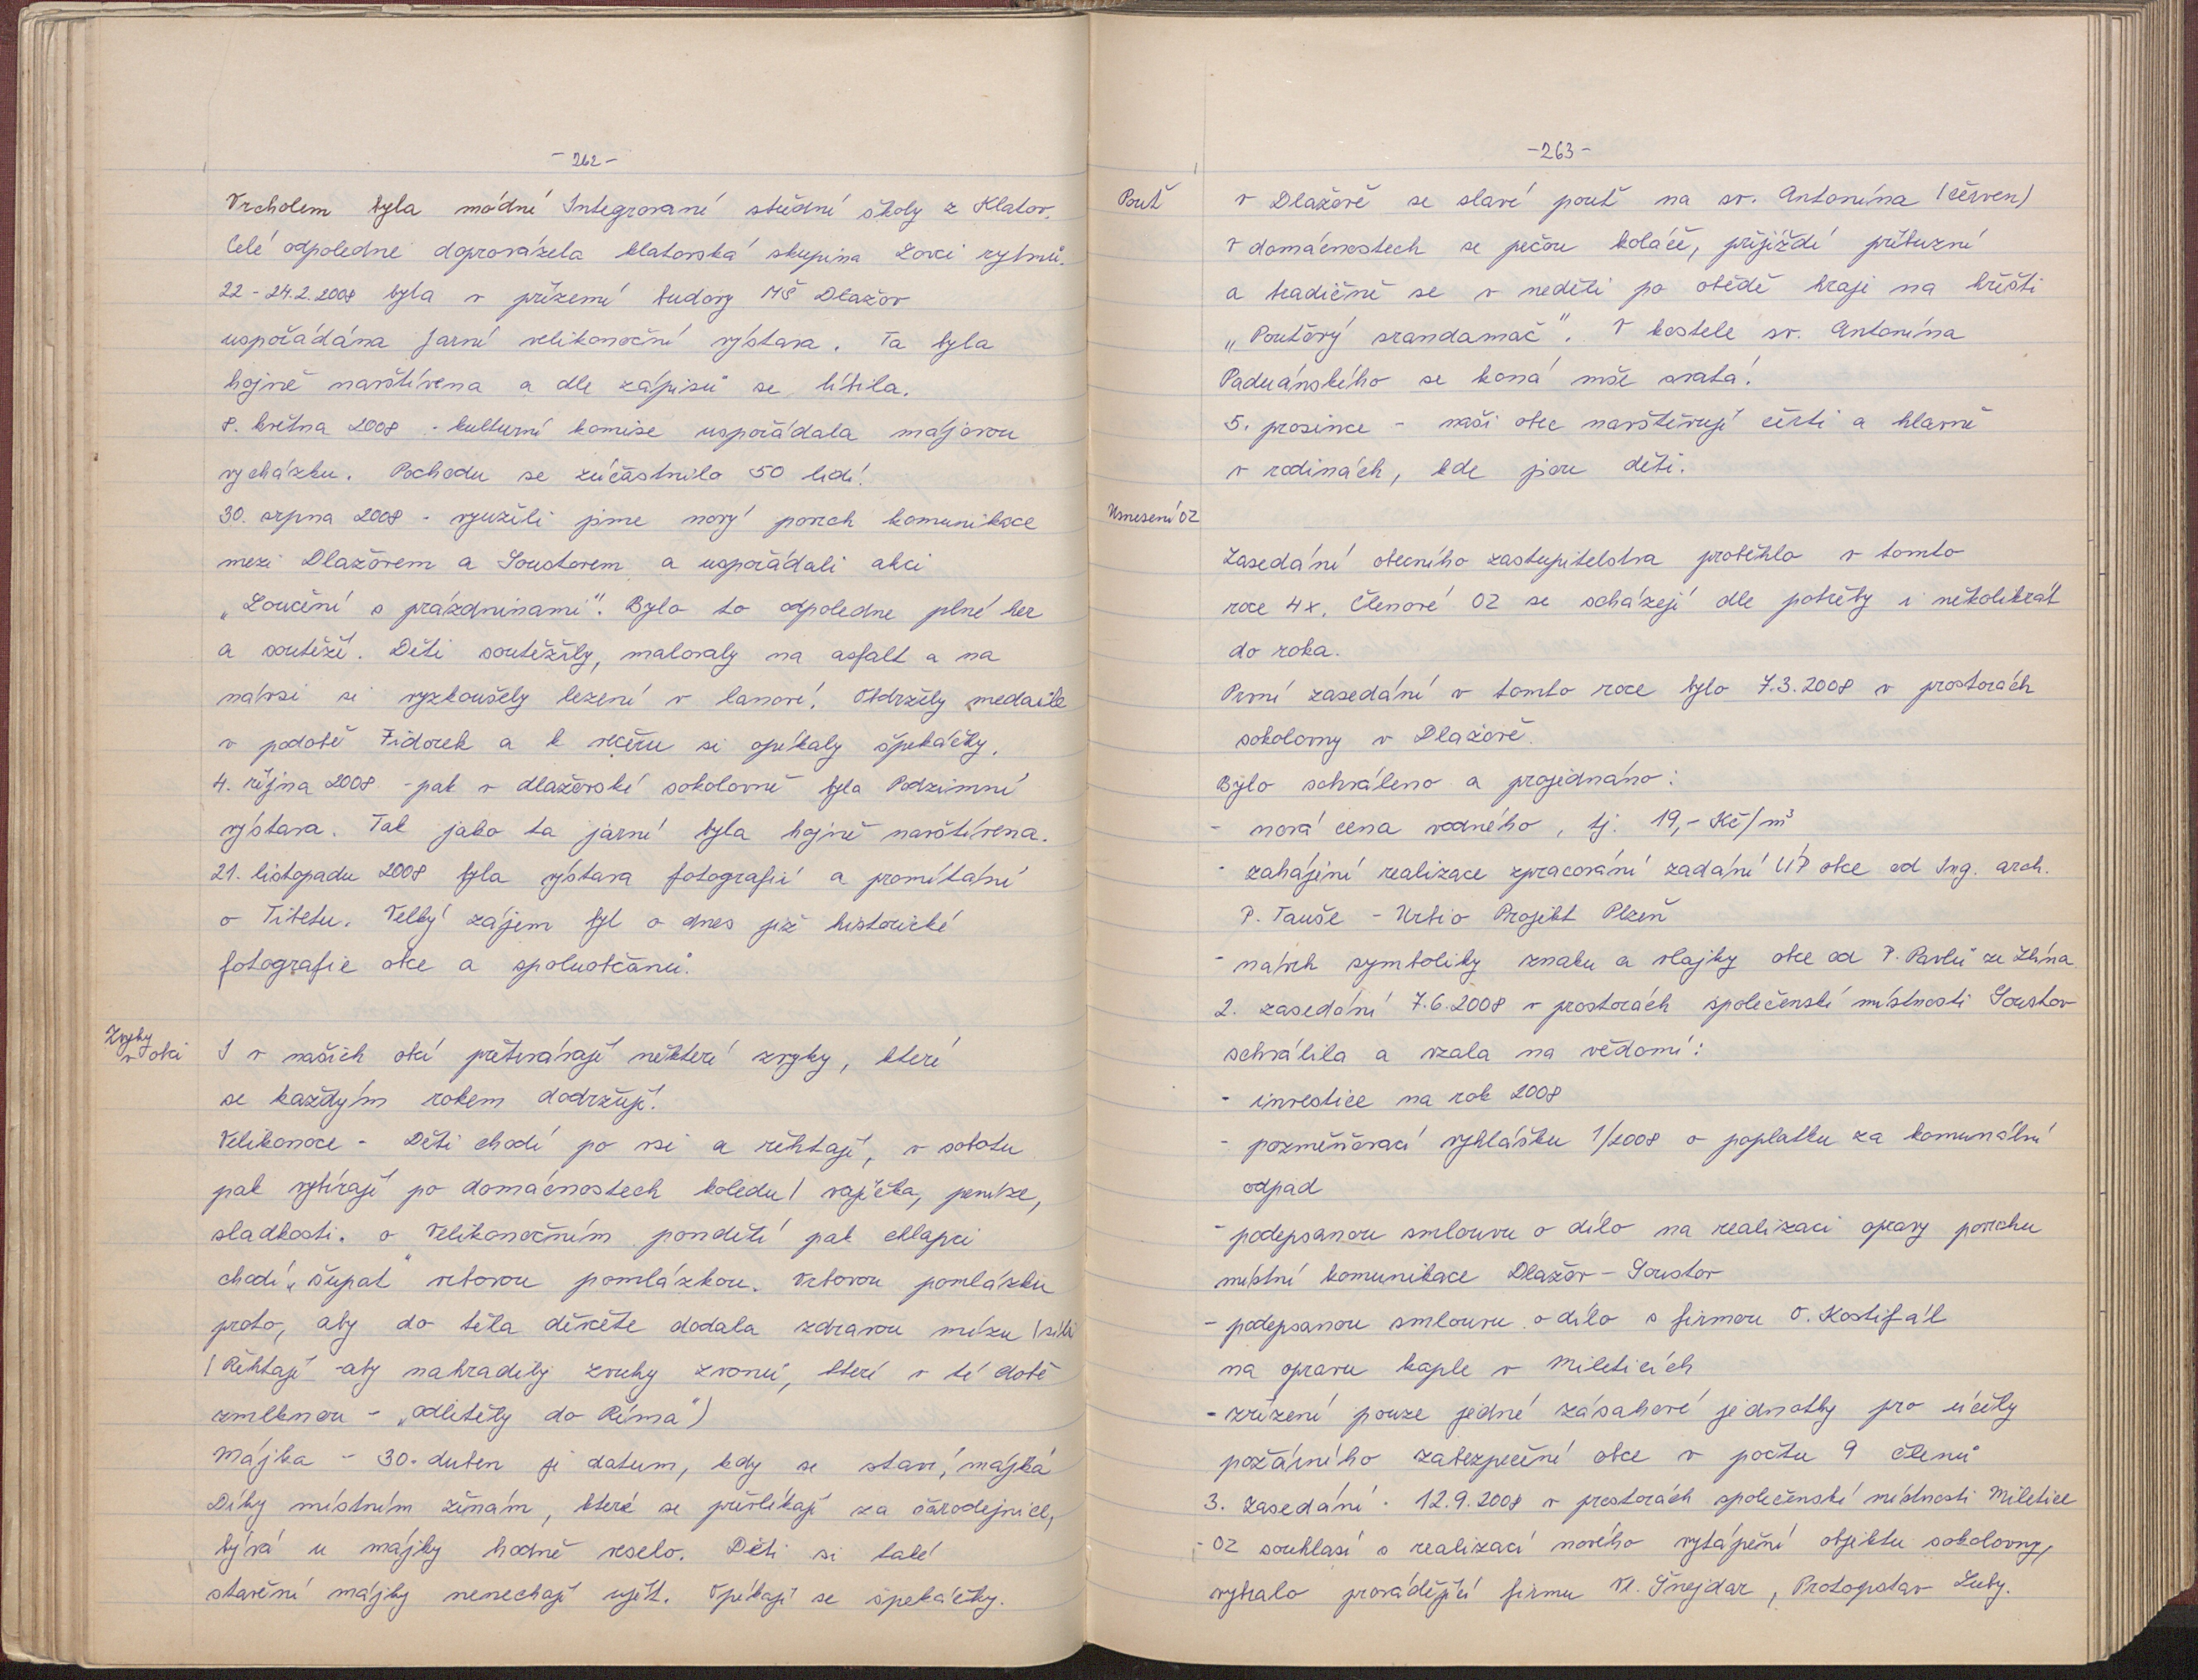 - 262 -
Vrcholem byla módní Integrované střední školy z Klatov.
Celé odpoledne doprovázela klatovská skupina Lovci rytmů.
22 - 24.2.2008 byla v přízemí budovy MŠ Dlažov
uspořádána Jarní velikonoční výstava. Ta byla
hojně navštívena a dle zápisů se líbila.
8. května 2008 - kulturní komise uspořádala májovou
vycházku. Pochodu se zúčastnilo 50 lidí.
30. srpna 2008 - využili jsme nový povrch komunikace
mezi Dlažovem a Soustovem a uspořádali akci
„Loučení s prázdninami". Bylo to odpoledne plné her
a soutěží. Děti soutěžily, malovaly na asfalt a na
návsi si vyzkoušely lezení v lanoví. Obdržely medaile
v podobě Fidorek a k večeru si opékaly špekáčky.
4. října 2008 - pak v dlažovské sokolovně byla Podzimní
výstava. Tak jako ta jarní byla hojně navštívena.
21. listopadu 2008 byla výstava fotografií a promítání
o Tibetu. Velký zájem byl o dnes již historické
fotografie obce a spoluobčanů.
Zvyky
v obci
I v našich obcí přetrvávají některé zvyky, které
se každým rokem dodržují.
Velikonoce - Děti chodí po vsi a řehtají, v sobotu
pak vybírají po domácnostech koledu / vajíčka, peníze,
sladkosti. o Velikonočním pondělí pak chlapci
chodí „šupat" vrbovou pomlázkou. Vrbovou pomlázku
proto, aby do těla děvčete dodala zdravou mízu / sílu
/ Řehtají - aby nahradily zvuky zvonů, které v té době
zmlknou - „odletěly do Říma")
Májka - 30. duben je datum, kdy se staví májka
Díky místním ženám, které se převlékají za čarodejnice,
bývá u májky hodně veselo. Děti si také
stavění májky nenechají ujít. Opékají se špekáčky.
- 263 -
Pouť
v Dlažově se slaví pouť na sv. Antonína /červen/
V domácnostech se pečou koláče, přijíždí příbuzní
a tradičně se v neděli po obědě hraje na hřišti
„Pouťový srandamač". V kostele sv. Antonína
Paduánského se koná mše svatá.
5. prosince - naši obec navštěvují čerti a hlavně
v rodinách, kde jsou děti.
Usnesení OZ
Zasedání obecního zastupitelstva proběhlo v tomto
roce 4x. Členové OZ se scházejí dle potřeby i několikrát
do roka.
První zasedání v tomto roce bylo 7.3.2008 v prostorách
sokolovny v Dlažově.
Bylo schváleno a projednáno:
- nová cena vodného, tj. 19,- Kč/m³
- zahájení realizace zpracování zadání ÚP obce od Ing. arch.
P. Tauše - Urbio Projekt Plzeň
- návrh symboliky znaku a vlajky obce od P. Pavlů ze Zlína
2. zasedání 7.6.2008 v prostorách společenské místnosti Soustov
schválila a vzala na vědomí:
- investice na rok 2008
- pozměňovací vyhlášku 1/2008 o poplatku za komunální
odpad
- podepsanou smlouvu o dílo na realizaci opravy povrchu
místní komunikace Dlažov - Soustov
- podepsanou smlouvu o dílo s firmou O. Kostifál
na opravu kaple v Mileticích
- zřízení pouze jedné zásahové jednotky pro účely
požárního zabezpečení obce v počtu 9 členů
3. Zasedání - 12.9.2008 v prostorách společenské místnosti Miletice
- OZ souhlasí s realizací nového vytápění objektu sokolovny,
vybralo provádějící firmu Vl. Šnejdar, Protopstav Luby.